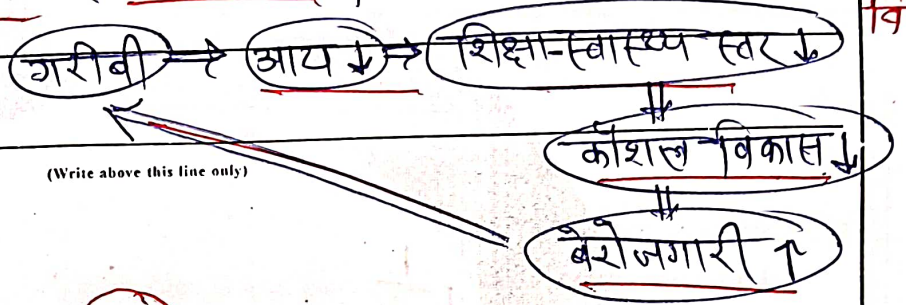 गरीबी ⇒ आय ↓ ⇒ शिक्षा-स्वास्थ्य स्तर ↓
कौशल-विकास ↓
(Write above this line only)
बेरोजगारी ↑